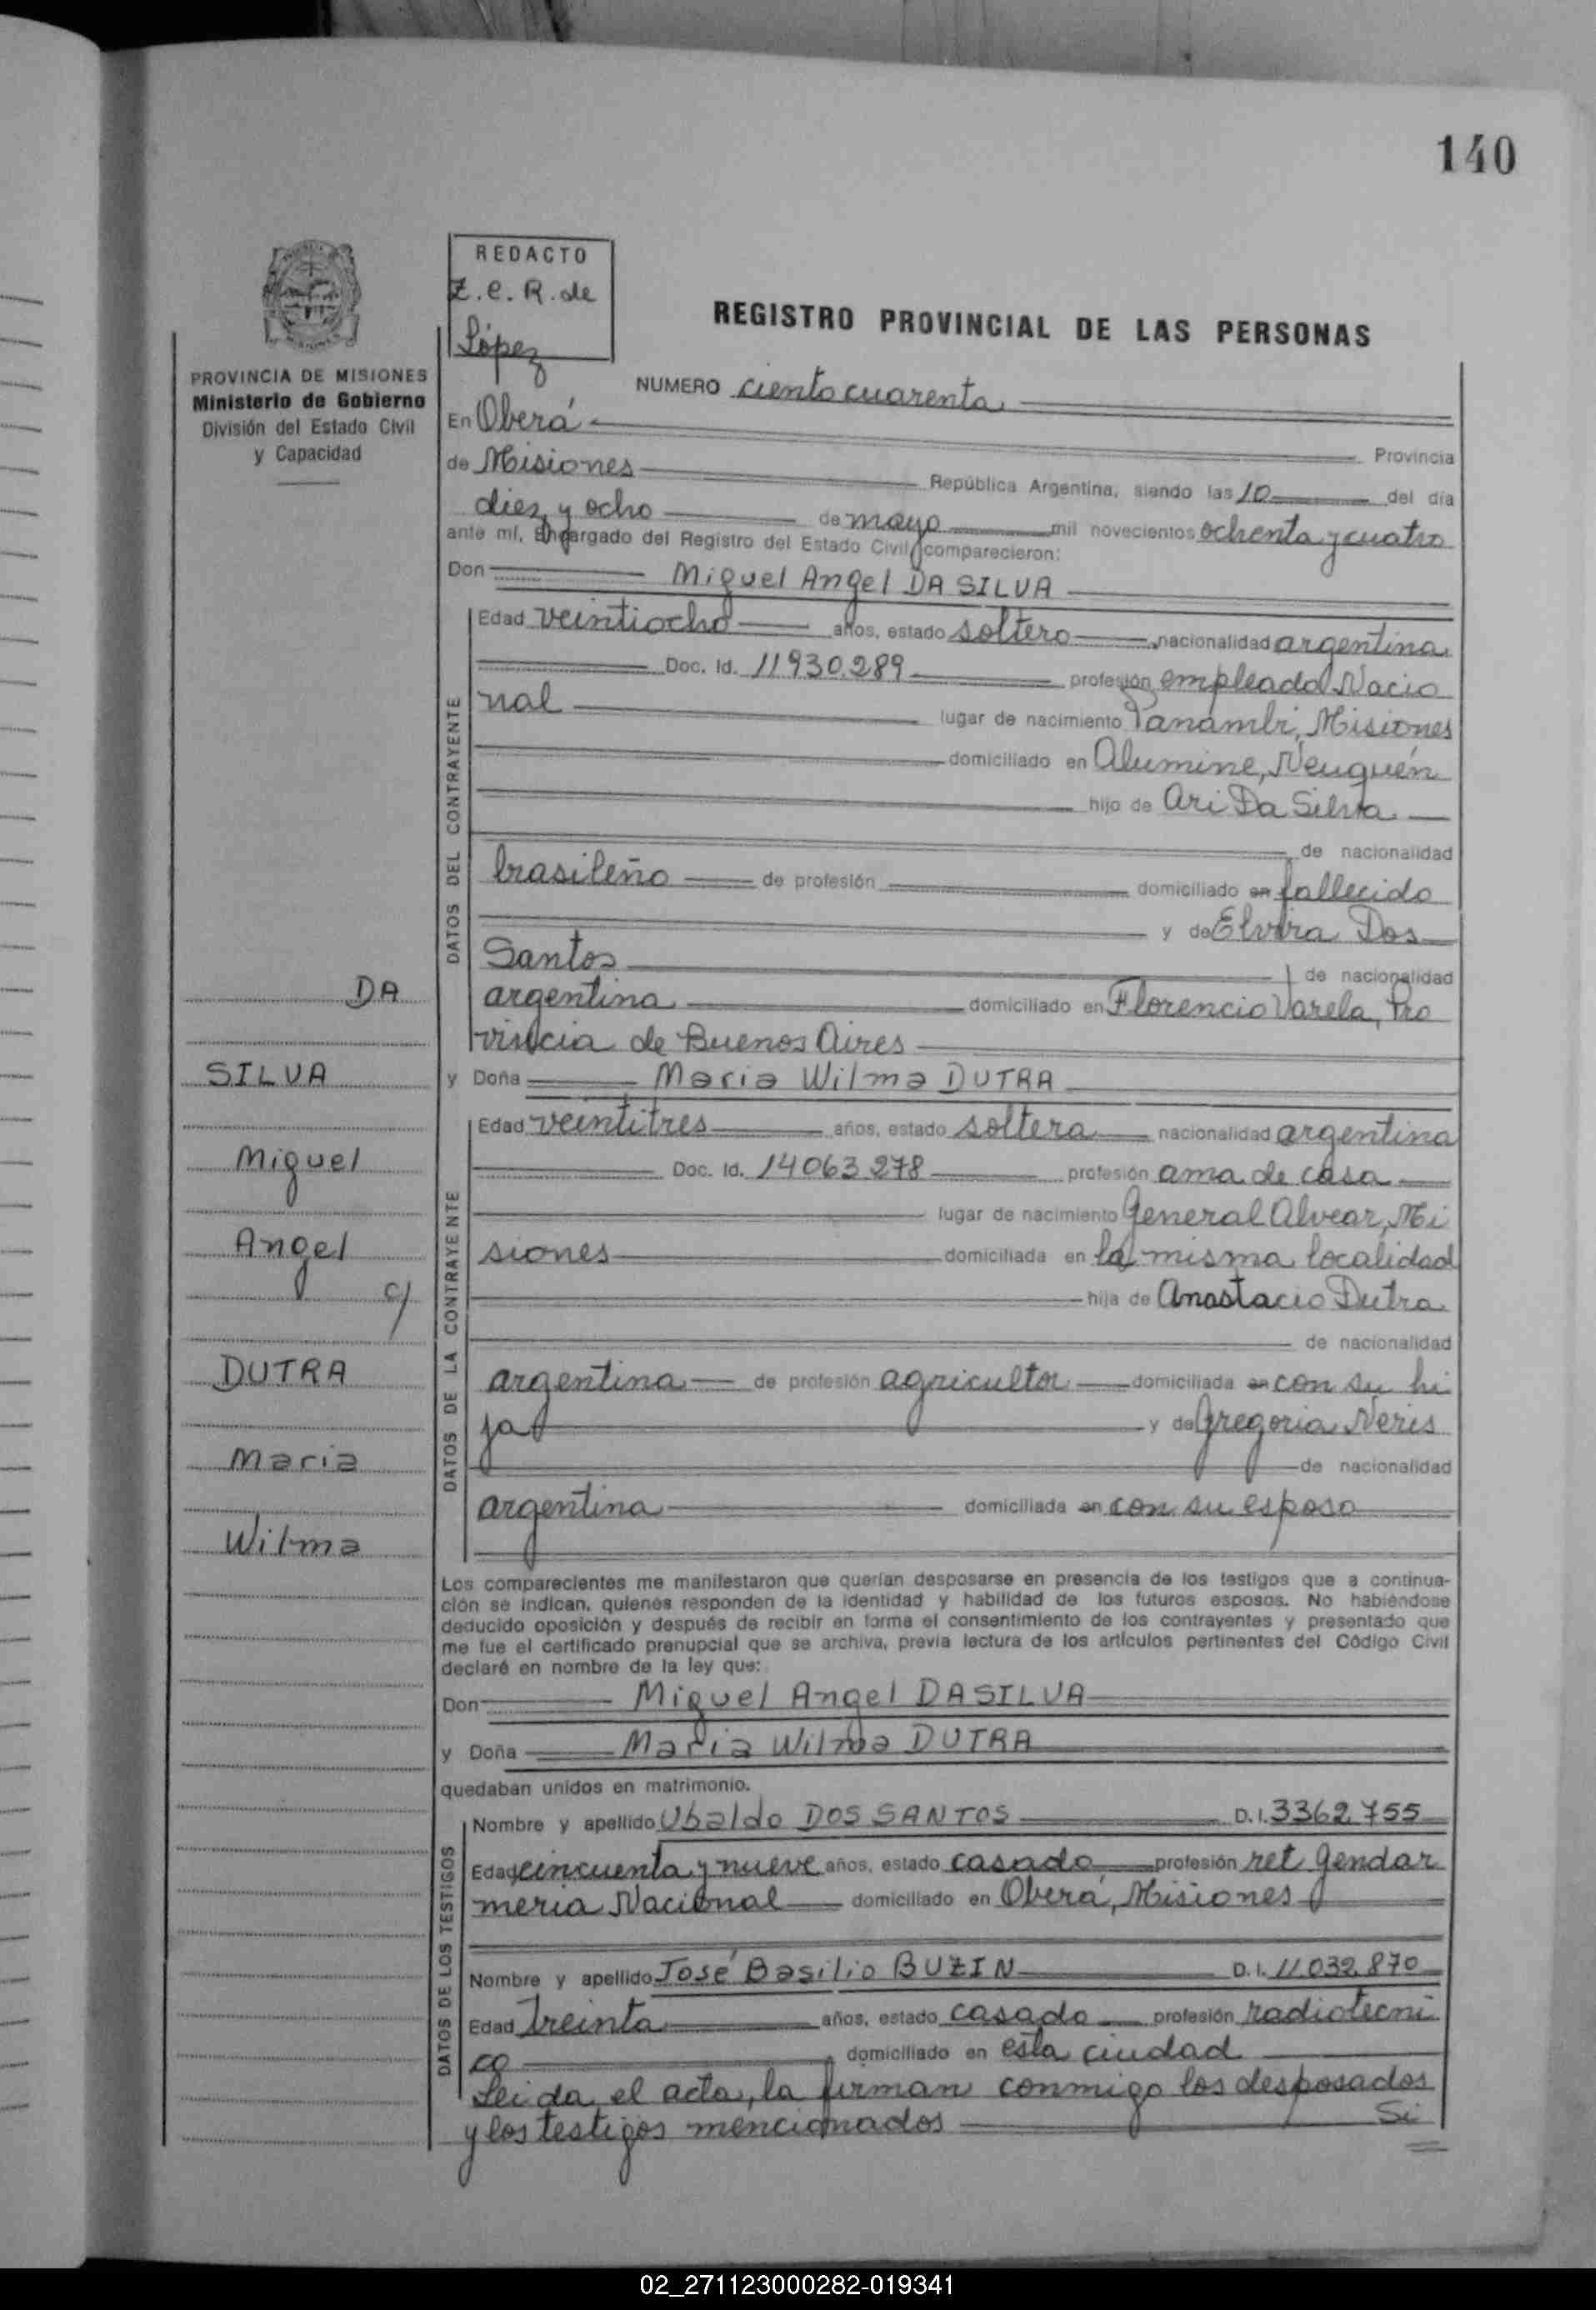 140
REDACTO
Z.e.R. de
López
REGISTRO PROVINCIAL DE LAS PERSONAS
PROVINCIA DE MISIONES
Ministerio de Gobierno
División del Estado Civil
y Capacidad
NUMERO ciento cuarenta
En Oberá
Provincia
de Misiones República Argentina, siendo las 10 del día
diez y ocho de mayo mil novecientos ochenta y cuatro
ante mí, Encargado del Registro del Estado Civil comparecieron:
Don Miguel Angel DA SILVA
DATOS DEL CONTRAYENTE
Edad veintiocho años, estado soltero nacionalidad argentina
Doc. Id. 11930.289 profesión empleado Nacio
nal lugar de nacimiento Panambi, Misiones
domiciliado en Alumine, Neuquén
hijo de Ari Da Silva
de nacionalidad
brasileño de profesión domiciliado en fallecido
y de Elvira Dos
Santos de nacionalidad
argentina domiciliado en Florencio Varela, Pro
vincia de Buenos Aires
DA
SILVA
Miguel
Angel
c/
DUTRA
Maria
Wilma
y Doña Maria Wilma DUTRA
DATOS DE LA CONTRAYENTE
Edad veintitres años, estado soltera nacionalidad argentina
Doc. Id. 14063.278 profesión ama de casa
lugar de nacimiento General Alvear, Mi
siones domiciliada en la misma localidad
hija de Anastacio Dutra
de nacionalidad
argentina de profesión agricultor domiciliada en con su hi
ja y de Gregoria Neris
de nacionalidad
argentina domiciliada en con su esposo
Los comparecientes me manifestaron que querían desposarse en presencia de los testigos que a continua-
ción se indican, quienes responden de la identidad y habilidad de los futuros esposos. No habiéndose
deducido oposición y después de recibir en forma el consentimiento de los contrayentes y presentado que
me fue el certificado prenupcial que se archiva, previa lectura de los artículos pertinentes del Código Civil
declaré en nombre de la ley que:
Don Miguel Angel DASILVA
y Doña Maria Wilma DUTRA
quedaban unidos en matrimonio.
DATOS DE LOS TESTIGOS
Nombre y apellido Ubaldo DOS SANTOS D.I. 3362.755
Edad cincuenta y nueve años, estado casado profesión ret Gendar
meria Nacional domiciliado en Oberá, Misiones
Nombre y apellido José Basilio BUZIN D.I. 11.032.870
Edad treinta años, estado casado profesión radiotecni
co domiciliado en esta ciudad
Leida el acta, la firman conmigo los desposados
y los testigos mencionados Si
02_271123000282-019341